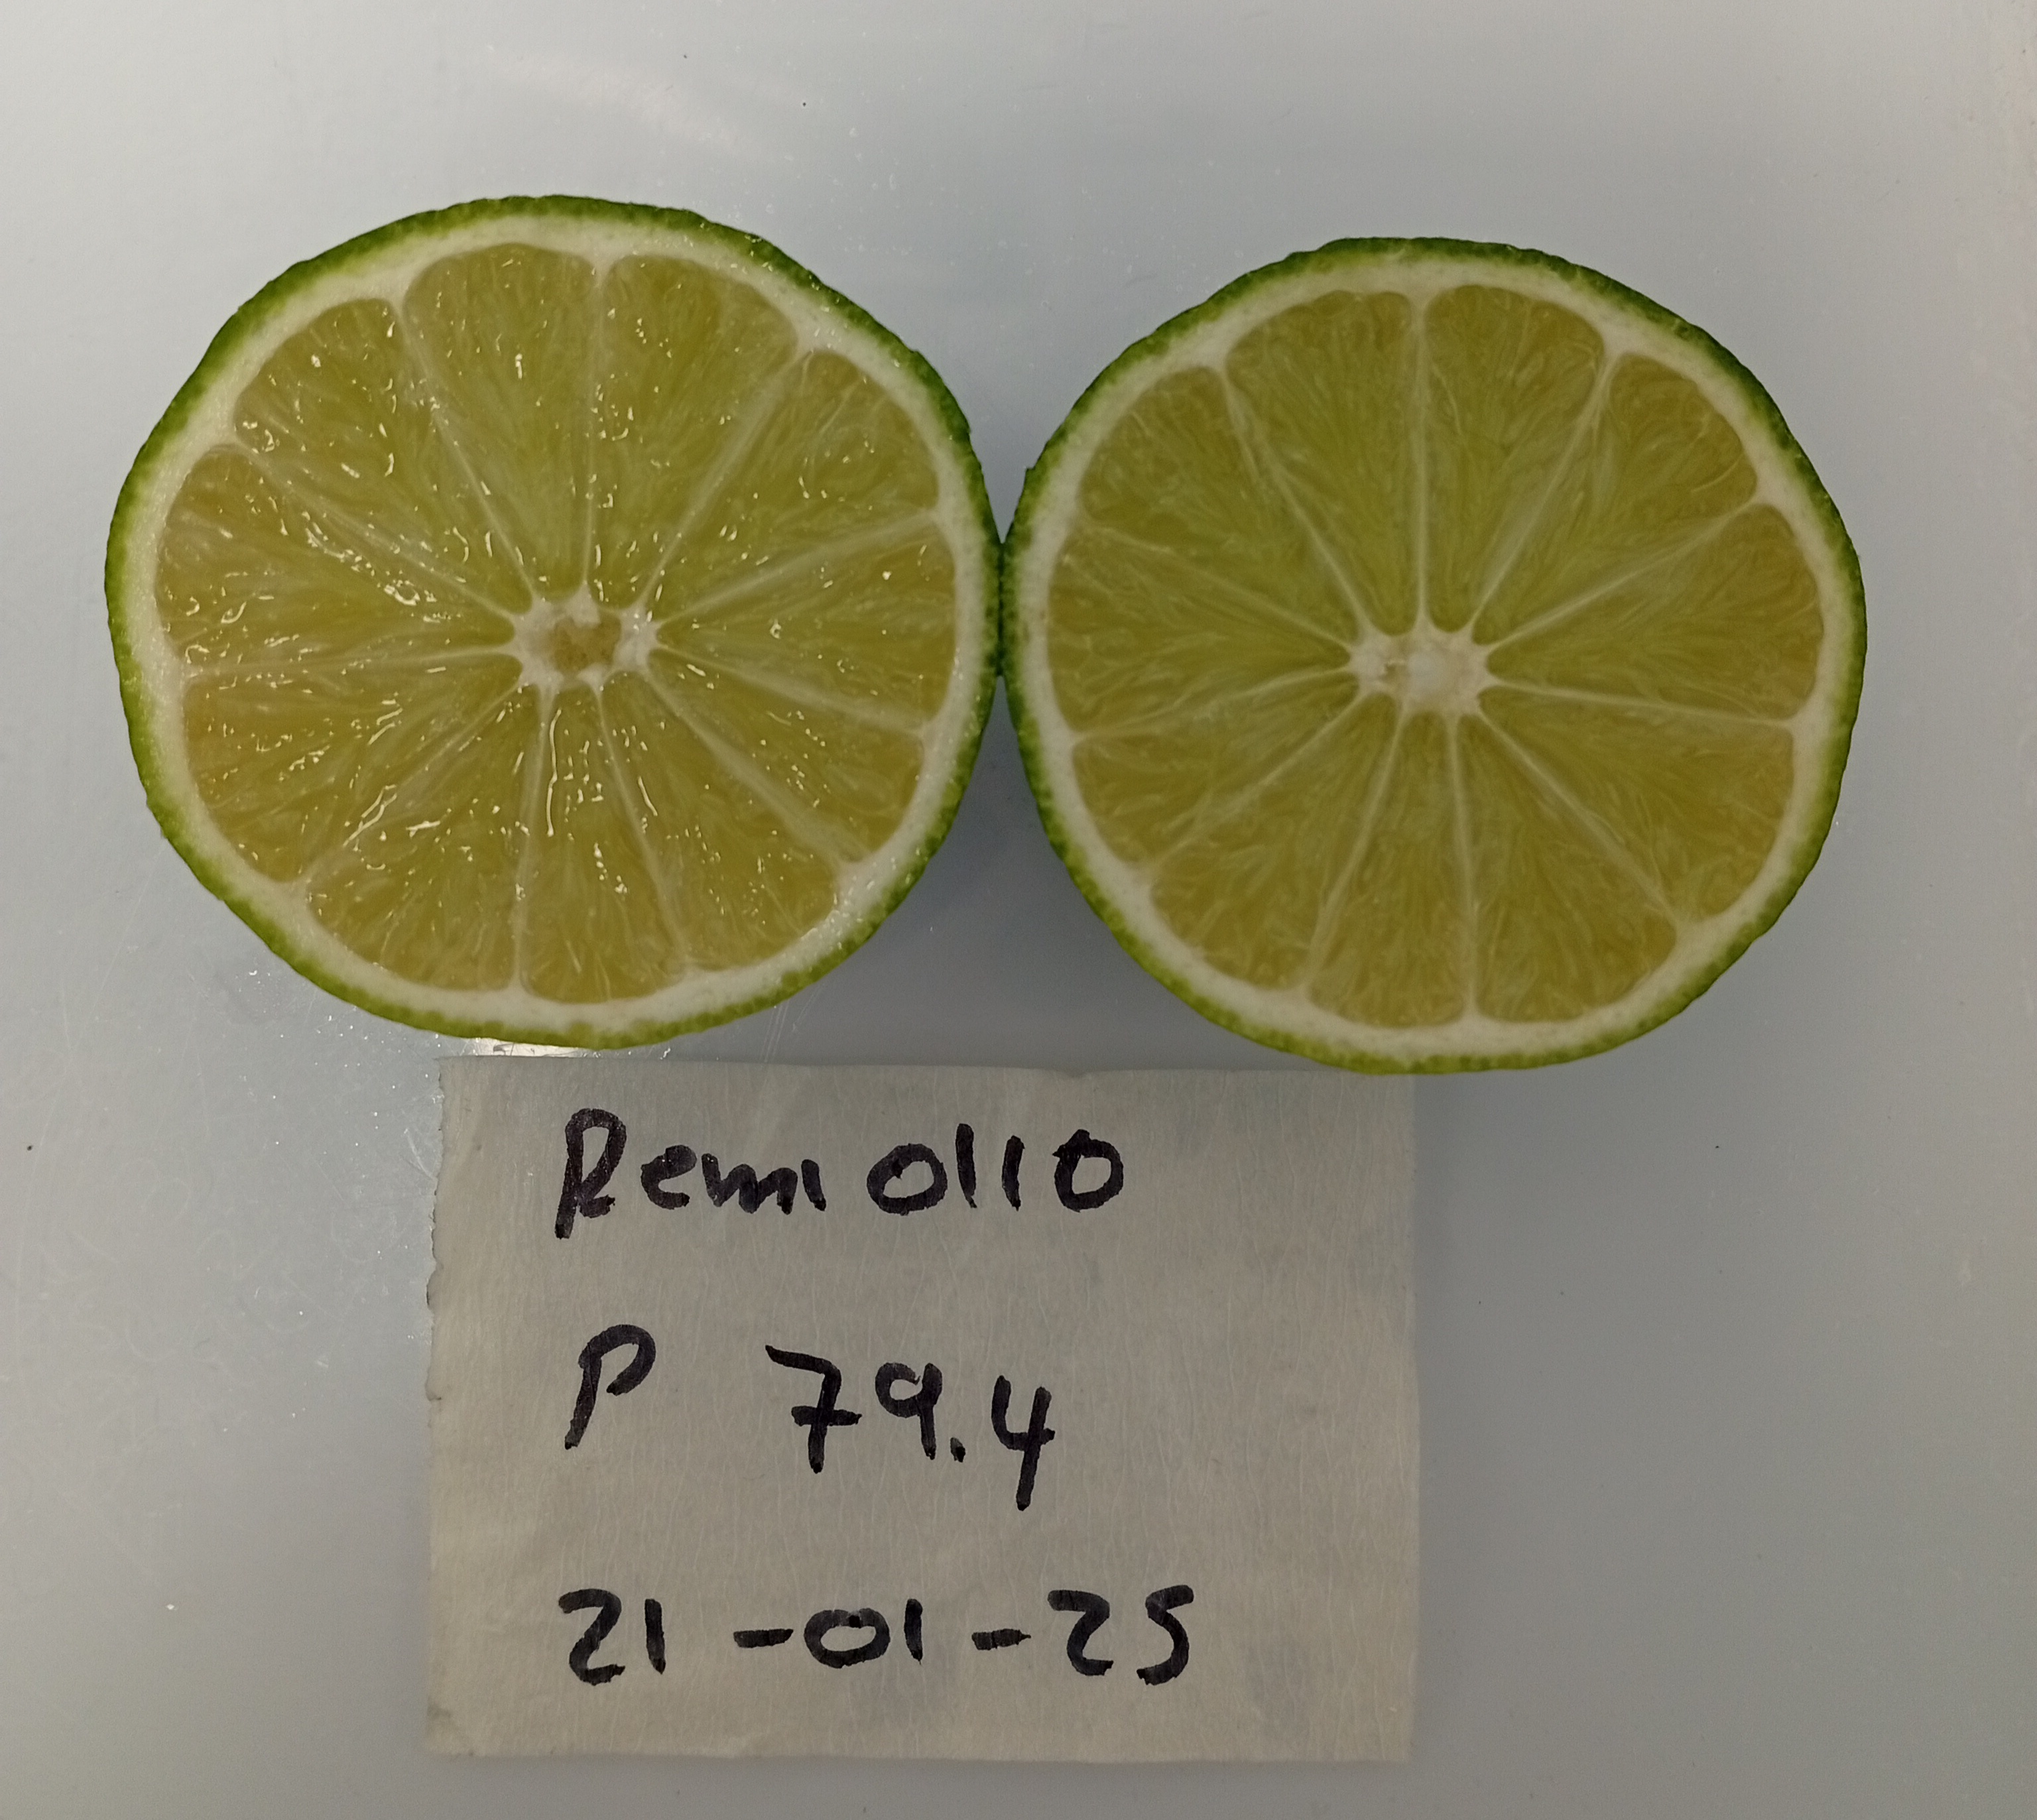 Remi 0110
P 79.4
21-01-25